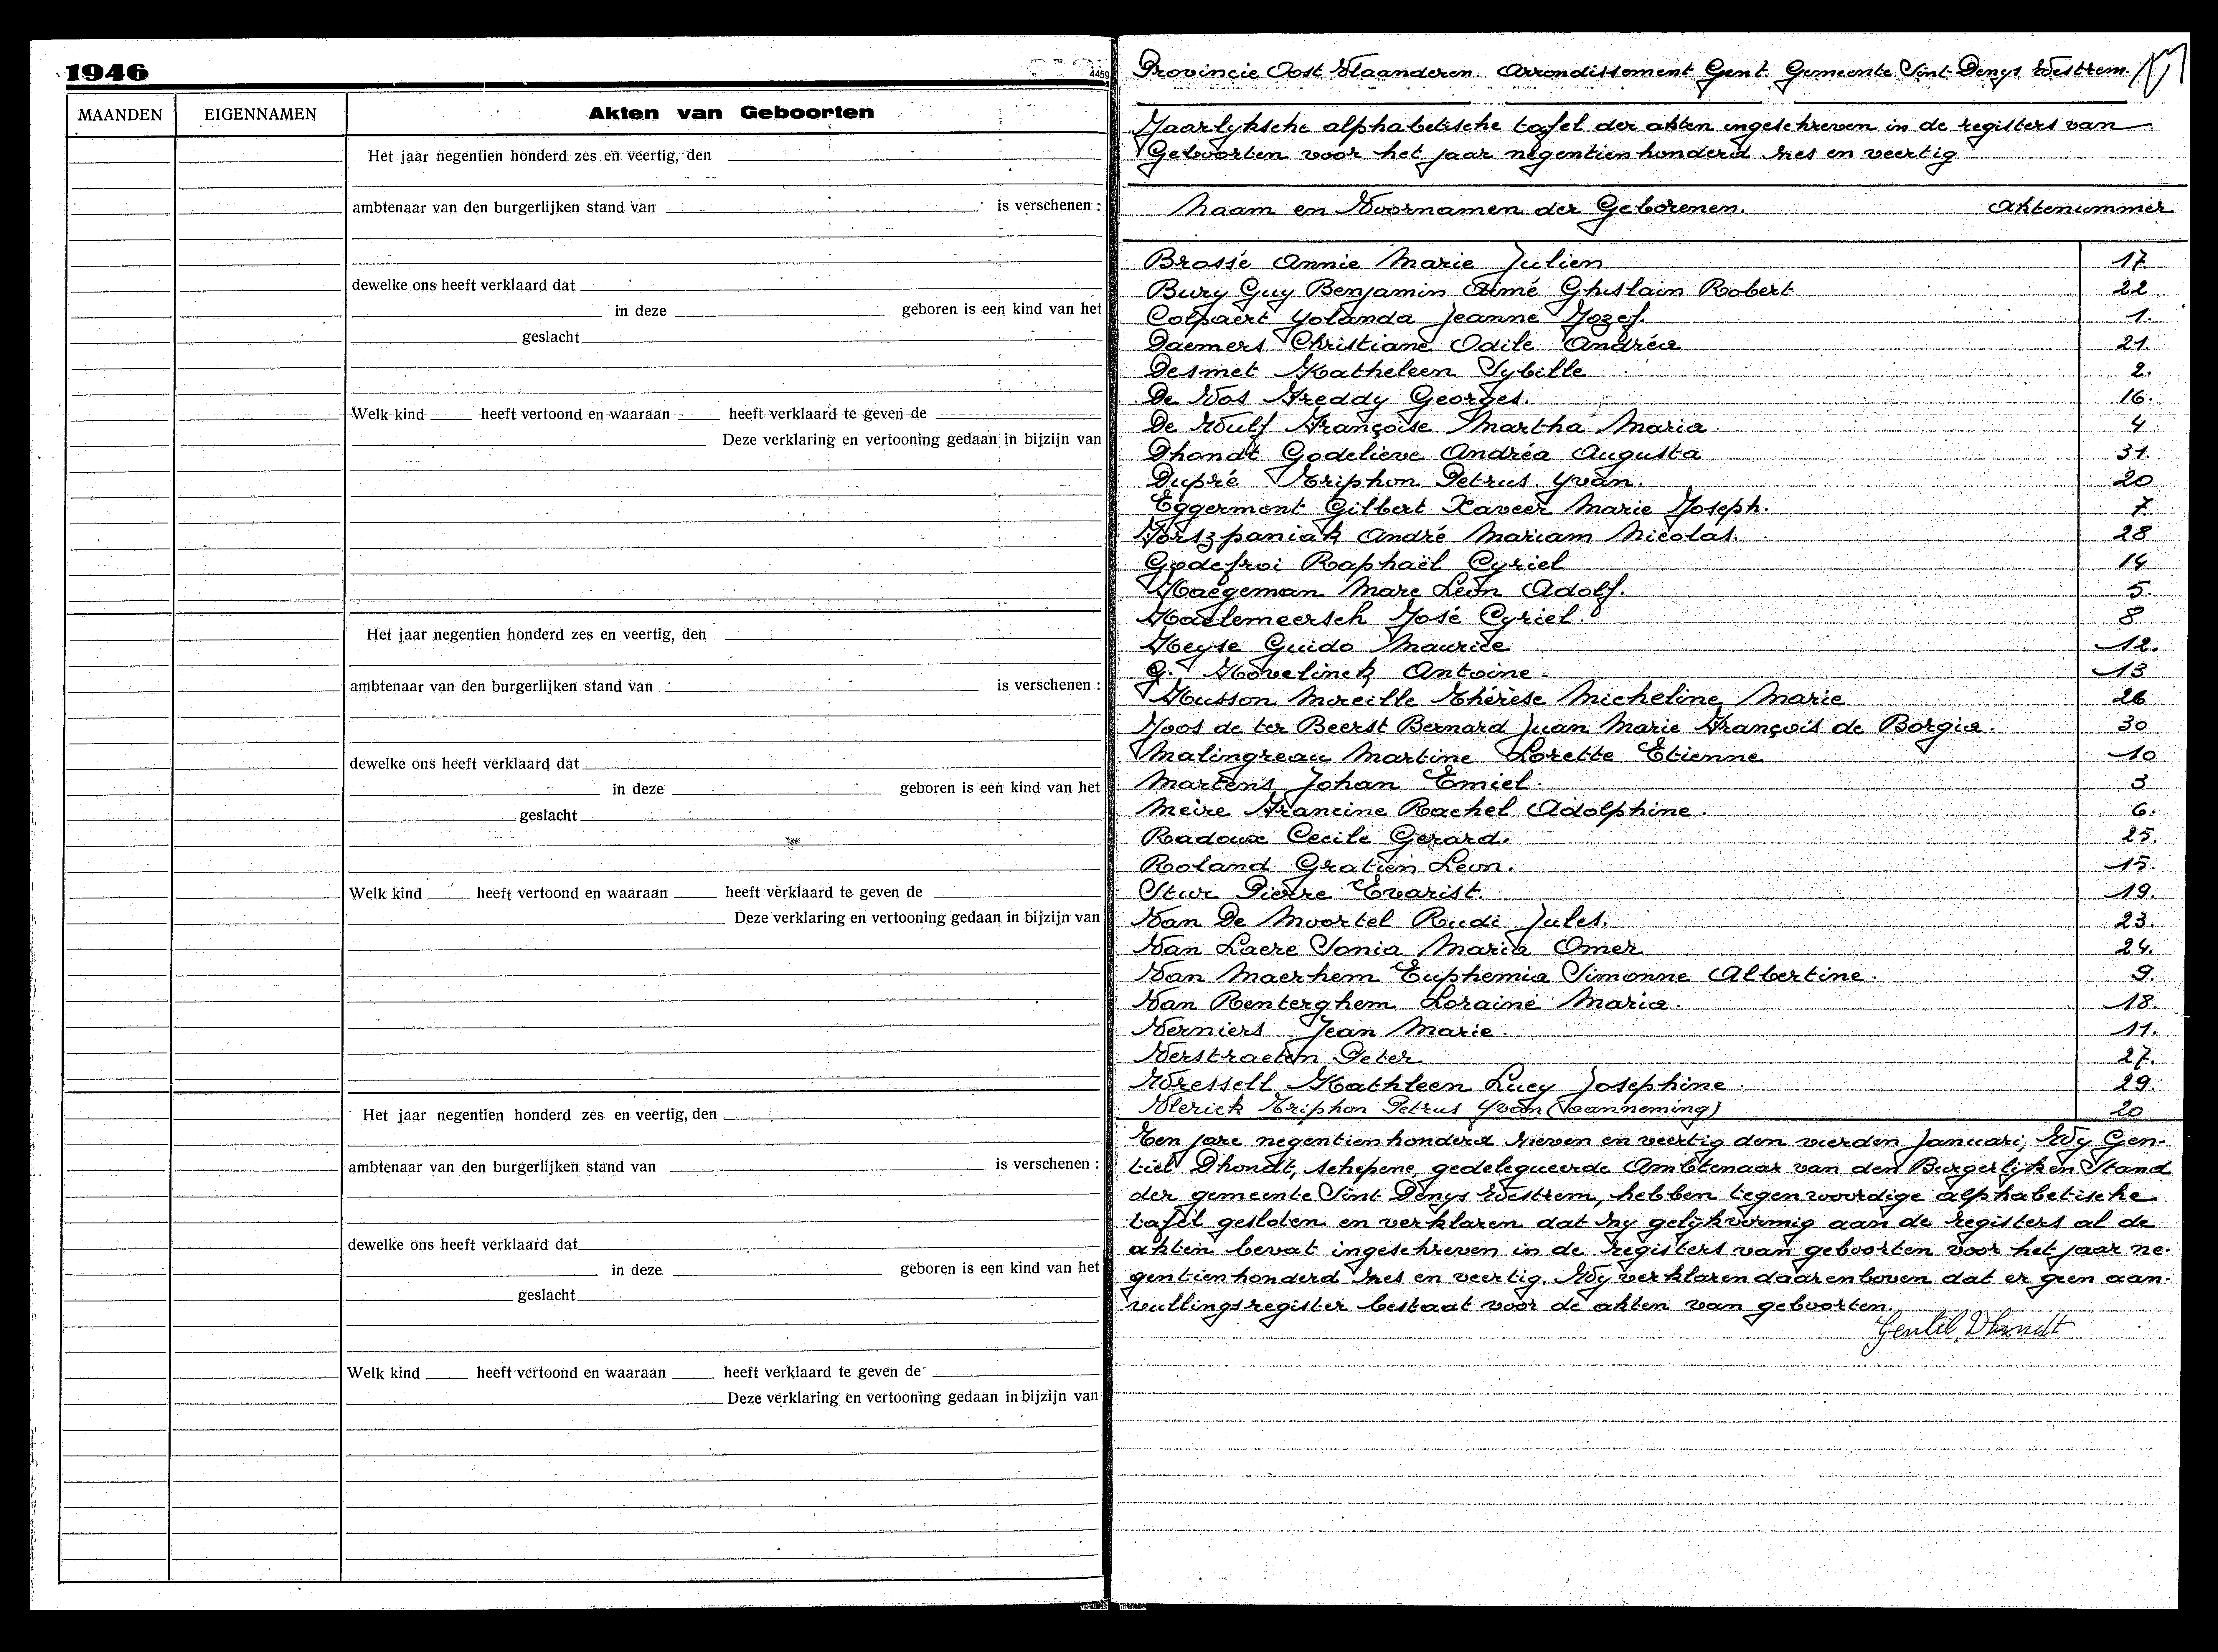 1946
MAANDEN EIGENNAMEN Akten van Geboorten
Het jaar negentien honderd zes en veertig, den
ambtenaar van den burgerlijken stand van is verschenen :
dewelke ons heeft verklaard dat
in deze geboren is een kind van het
geslacht
Welk kind heeft vertoond en waaraan heeft verklaard te geven de
Deze verklaring en vertooning gedaan in bijzijn van
Het jaar negentien honderd zes en veertig, den
ambtenaar van den burgerlijken stand van is verschenen :
dewelke ons heeft verklaard dat
in deze geboren is een kind van het
geslacht
Welk kind heeft vertoond en waaraan heeft verklaard te geven de
Deze verklaring en vertooning gedaan in bijzijn van
Het jaar negentien honderd zes en veertig, den
ambtenaar van den burgerlijken stand van is verschenen :
dewelke ons heeft verklaard dat
in deze geboren is een kind van het
geslacht
Welk kind heeft vertoond en waaraan heeft verklaard te geven de
Deze verklaring en vertooning gedaan in bijzijn van
4459
Provincie Oost Vlaanderen. Arrondissement Gent. Gemeente Sint Denys Westrem.
Jaarlyksche alphabetische tafel der akten ingeschreven in de registers van
Geboorten voor het jaar negentienhonderd zes en veertig
Naam en Voornamen der Geborenen. Aktenummer
Brossé Annie Marie Julien 17
Bury Guy Benjamin Aimé Ghislain Robert 22
Colpaert Yolanda Jeanne Jozef. 1.
Daemers Christiane Odile Andréa 21.
Desmet Katheleen Sybille 2.
De Vos Freddy Georges. 16.
De Wulf Françoise Martha Maria 4
Dhondt Godelieve Andréa Augusta 31.
Dupré Triphon Petrus Yvan. 20
Eggermont Gilbert Xaveer Marie Joseph. 7.
Forszpaniak André Mariam Nicolas. 28
Godefroi Raphaël Cyriel 14
Haegeman Marc Leon Adolf. 5.
Haelemeersch José Cyriel. 8
Heyse Guido Maurice 12.
G. Hovelinck Antoine. 13
Husson Mireille Thérèse Micheline Marie 26
Joos de ter Beerst Bernard Juan Marie François de Borgia. 30
Malingreau Martine Lorette Etienne 10
Martens Johan Emiel. 3
Meire Francine Rachel Adolphine. 6.
Radoux Cecile Gerard. 25.
Roland Gratien Leon. 15.
Stur Pierre Evarist. 19.
Van De Moortel Rudi Jules. 23.
Van Laere Sonia Maria Omer 24.
Van Maerhem Euphemia Simonne Albertine. 9.
Van Renterghem Loraine Maria. 18.
Verniers Jean Marie. 11.
Verstraeten Peter 27.
Wressell Kathleen Lucy Josephine. 29.
Vlerick Triphon Petrus Yvan (aanneming) 20
Ten jare negentienhonderd zeven en veertig den vierden Januari, Wy Gen-
tiel Dhondt, schepene, gedelegueerde Ambtenaar van den Burgerlijken Stand
der gemeente Sint Denys Westrem, hebben tegenwoordige alphabetische
tafel gesloten en verklaren dat zy gelijkvormig aan de registers al de
akten bevat ingeschreven in de registers van geboorten voor het jaar ne-
gentienhonderd zes en veertig. Wy verklaren daarenboven dat er geen aan-
vullingsregister bestaat voor de akten van geboorten.
Gentil Dhondt